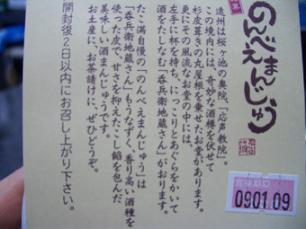 のんべえまんじゅう
遠州は桜ヶ池の奥院、「応声教院」。
この境内には、奇妙な酒樽を伏せて
杉皮葺きの丸屋根を乗せたお堂があります。
更にその風流なお堂の中には、
左手に杯を持ち、にっこりとあぐらをかいて
酒をたしなむ「呑兵衛地蔵さん」がおります。
たこ満自慢の「のんべえまんじゅう」は
「呑兵衛地蔵さん」もうなずく、香り高い酒種を
使った皮で、甘さを抑えたこし餡を包んだ
美味しい酒まんじゅうです。
お土産に、お茶請けに、ぜひどうぞ。
開封後2日以内にお召し上がり下さい。
賞味期限
0901.09